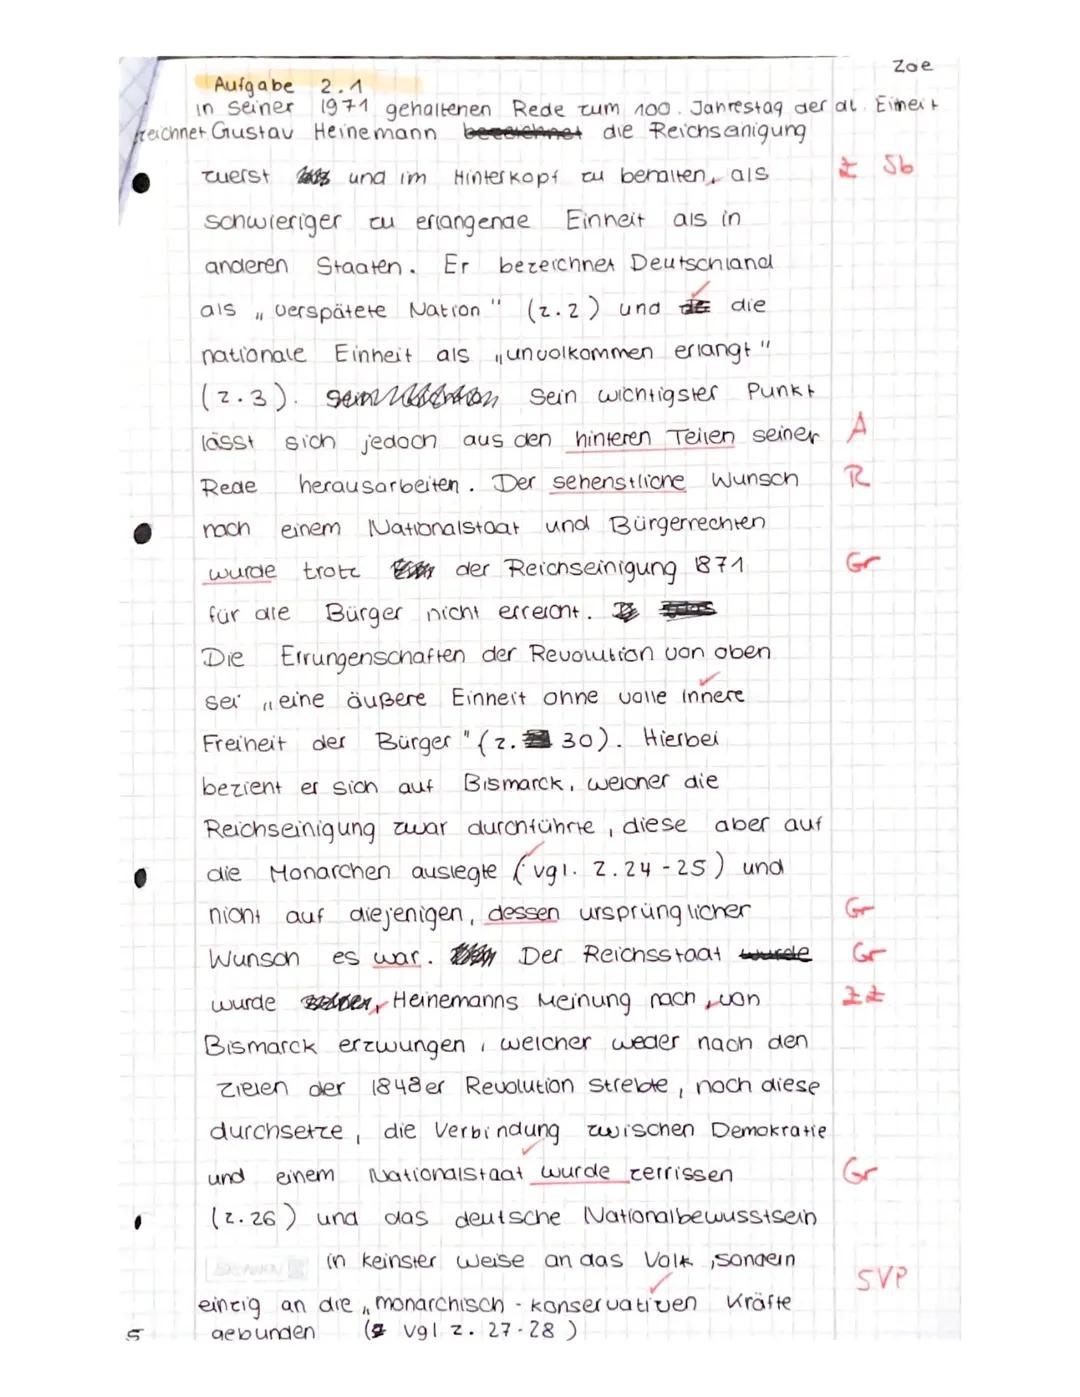 Zoe
Aufgabe 2.1
in seiner 1971 gehaltenen Rede zum 100. Jahrestag der dt. Einheit
zeichnet Gustav Heinemann bezeichnet die Reichseinigung
zuerst und im Hinterkopf zu behalten, als Z Sb
schwieriger zu erlangende Einheit als in
anderen Staaten. Er bezeichnet Deutschland
als „verspätete Nation" (z.2) und die
nationale Einheit als „unvolkommen erlangt"
(z.3). Sein wichtigster Punkt
lässt sich jedoch aus den hinteren Teilen seiner A
Rede herausarbeiten. Der sehenstliche Wunsch R
nach einem Nationalstaat und Bürgerrechten
wurde trotz der Reichseinigung 1871 Gr
für die Bürger nicht erreicht.
Die Errungenschaften der Revolution von oben
sei „eine äußere Einheit ohne volle innere
Freiheit der Bürger" (z. 30). Hierbei
bezieht er sich auf Bismarck, welcher die
Reichseinigung zwar durchführte, diese aber auf
die Monarchen auslegte (vgl. Z. 24-25) und
nicht auf diejenigen, dessen ursprünglicher Gr
Wunsch es war. Der Reichsstaat wurde Gr
wurde, Heinemanns Meinung nach, von ZZ
Bismarck erzwungen, welcher weder nach den
Zielen der 1848er Revolution strebte, noch diese
durchsetze, die Verbindung zwischen Demokratie
und einem Nationalstaat wurde zerrissen Gr
(z.26) und das deutsche Nationalbewusstsein
in keinster Weise an das Volk, sondern
SVP
einzig an die „monarchisch-konservativen Kräfte
5 gebunden (vgl z. 27-28)